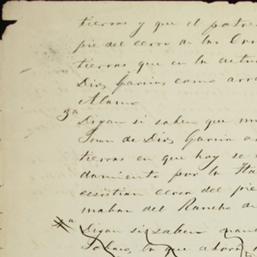 tierras y que el potre
pie del cerro de las Cru
tierras que en la actu
Dios Garcia como arre
Alamo.
3a Digan si saben que mu
Juan de Dios Garcia a
tierras en que hoy se
damiento por la Ha
existian cerca del pie
maban del Rancho de
Digan si saben
lo que ahora